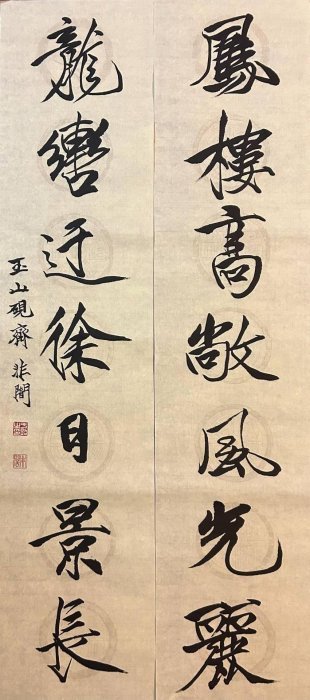 鳳樓高敞風光麗
龍轡迂徐日景長
玉山硯齋 非閒